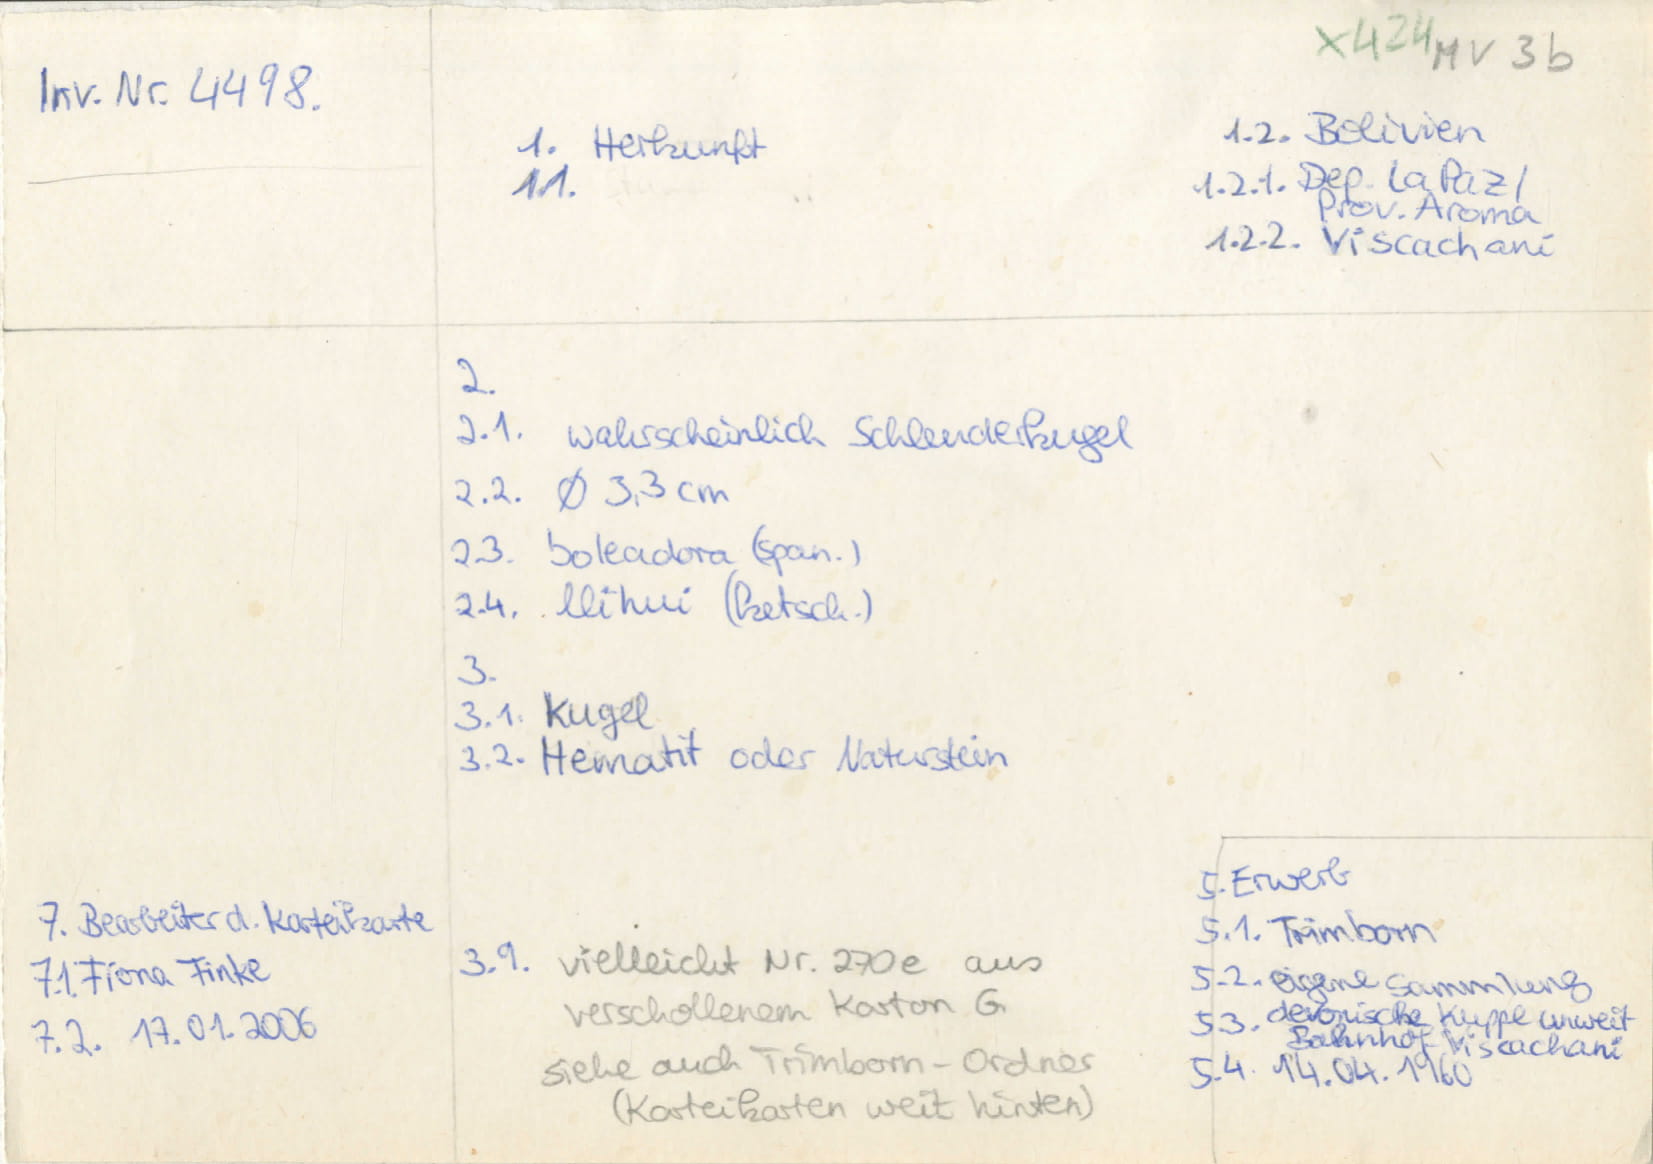 x424 MV 3b
Inv. Nr. 4498.
1. Herkunft
1.1.
1.2. Bolivien
1.2.1. Dep. La Paz/
Prov. Aroma
1.2.2. Viscachani
2.
2.1. wahrscheinlich Schleuderkugel
2.2. Ø 3,3 cm
2.3. boleadora (span.)
2.4. llihui (ketsch.)
3.
3.1. Kugel
3.2. Hematit oder Naturstein
3.9. vielleicht Nr. 270e aus
verschollenem Karton G
siehe auch Trimborn-Ordner
(Karteikarten weit hinten)
5. Erwerb
5.1. Trimborn
5.2. eigene Sammlung
5.3. devonische Kuppe unweit
Bahnhof Viscachani
5.4. 14.04.1960
7. Bearbeiter d. Karteikarte
7.1. Fiona Finke
7.2. 17.01.2006